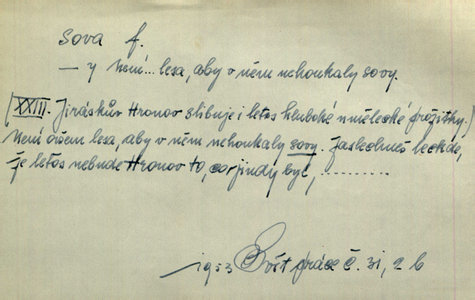 Sova f.
— y Není... lesa, aby v něm nehoukaly sovy.
XXIII. Jiráskův Hronov slibuje i letos hluboké umělecké prožitky.
Není ovšem lesa, aby v něm nehoukaly sovy. Zaslechneš leckde,
že letos nebude Hronov to, co jindy byl, ..........
1953 práce č. 31, 2 b